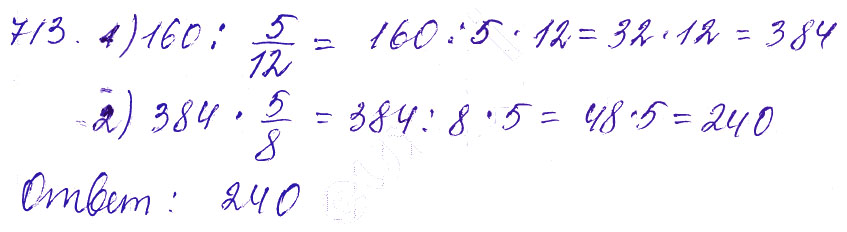 713. 1) 160 : 5/12 = 160 : 5 · 12 = 32 · 12 = 384
2) 384 · 5/8 = 384 : 8 · 5 = 48 · 5 = 240
Ответ: 240